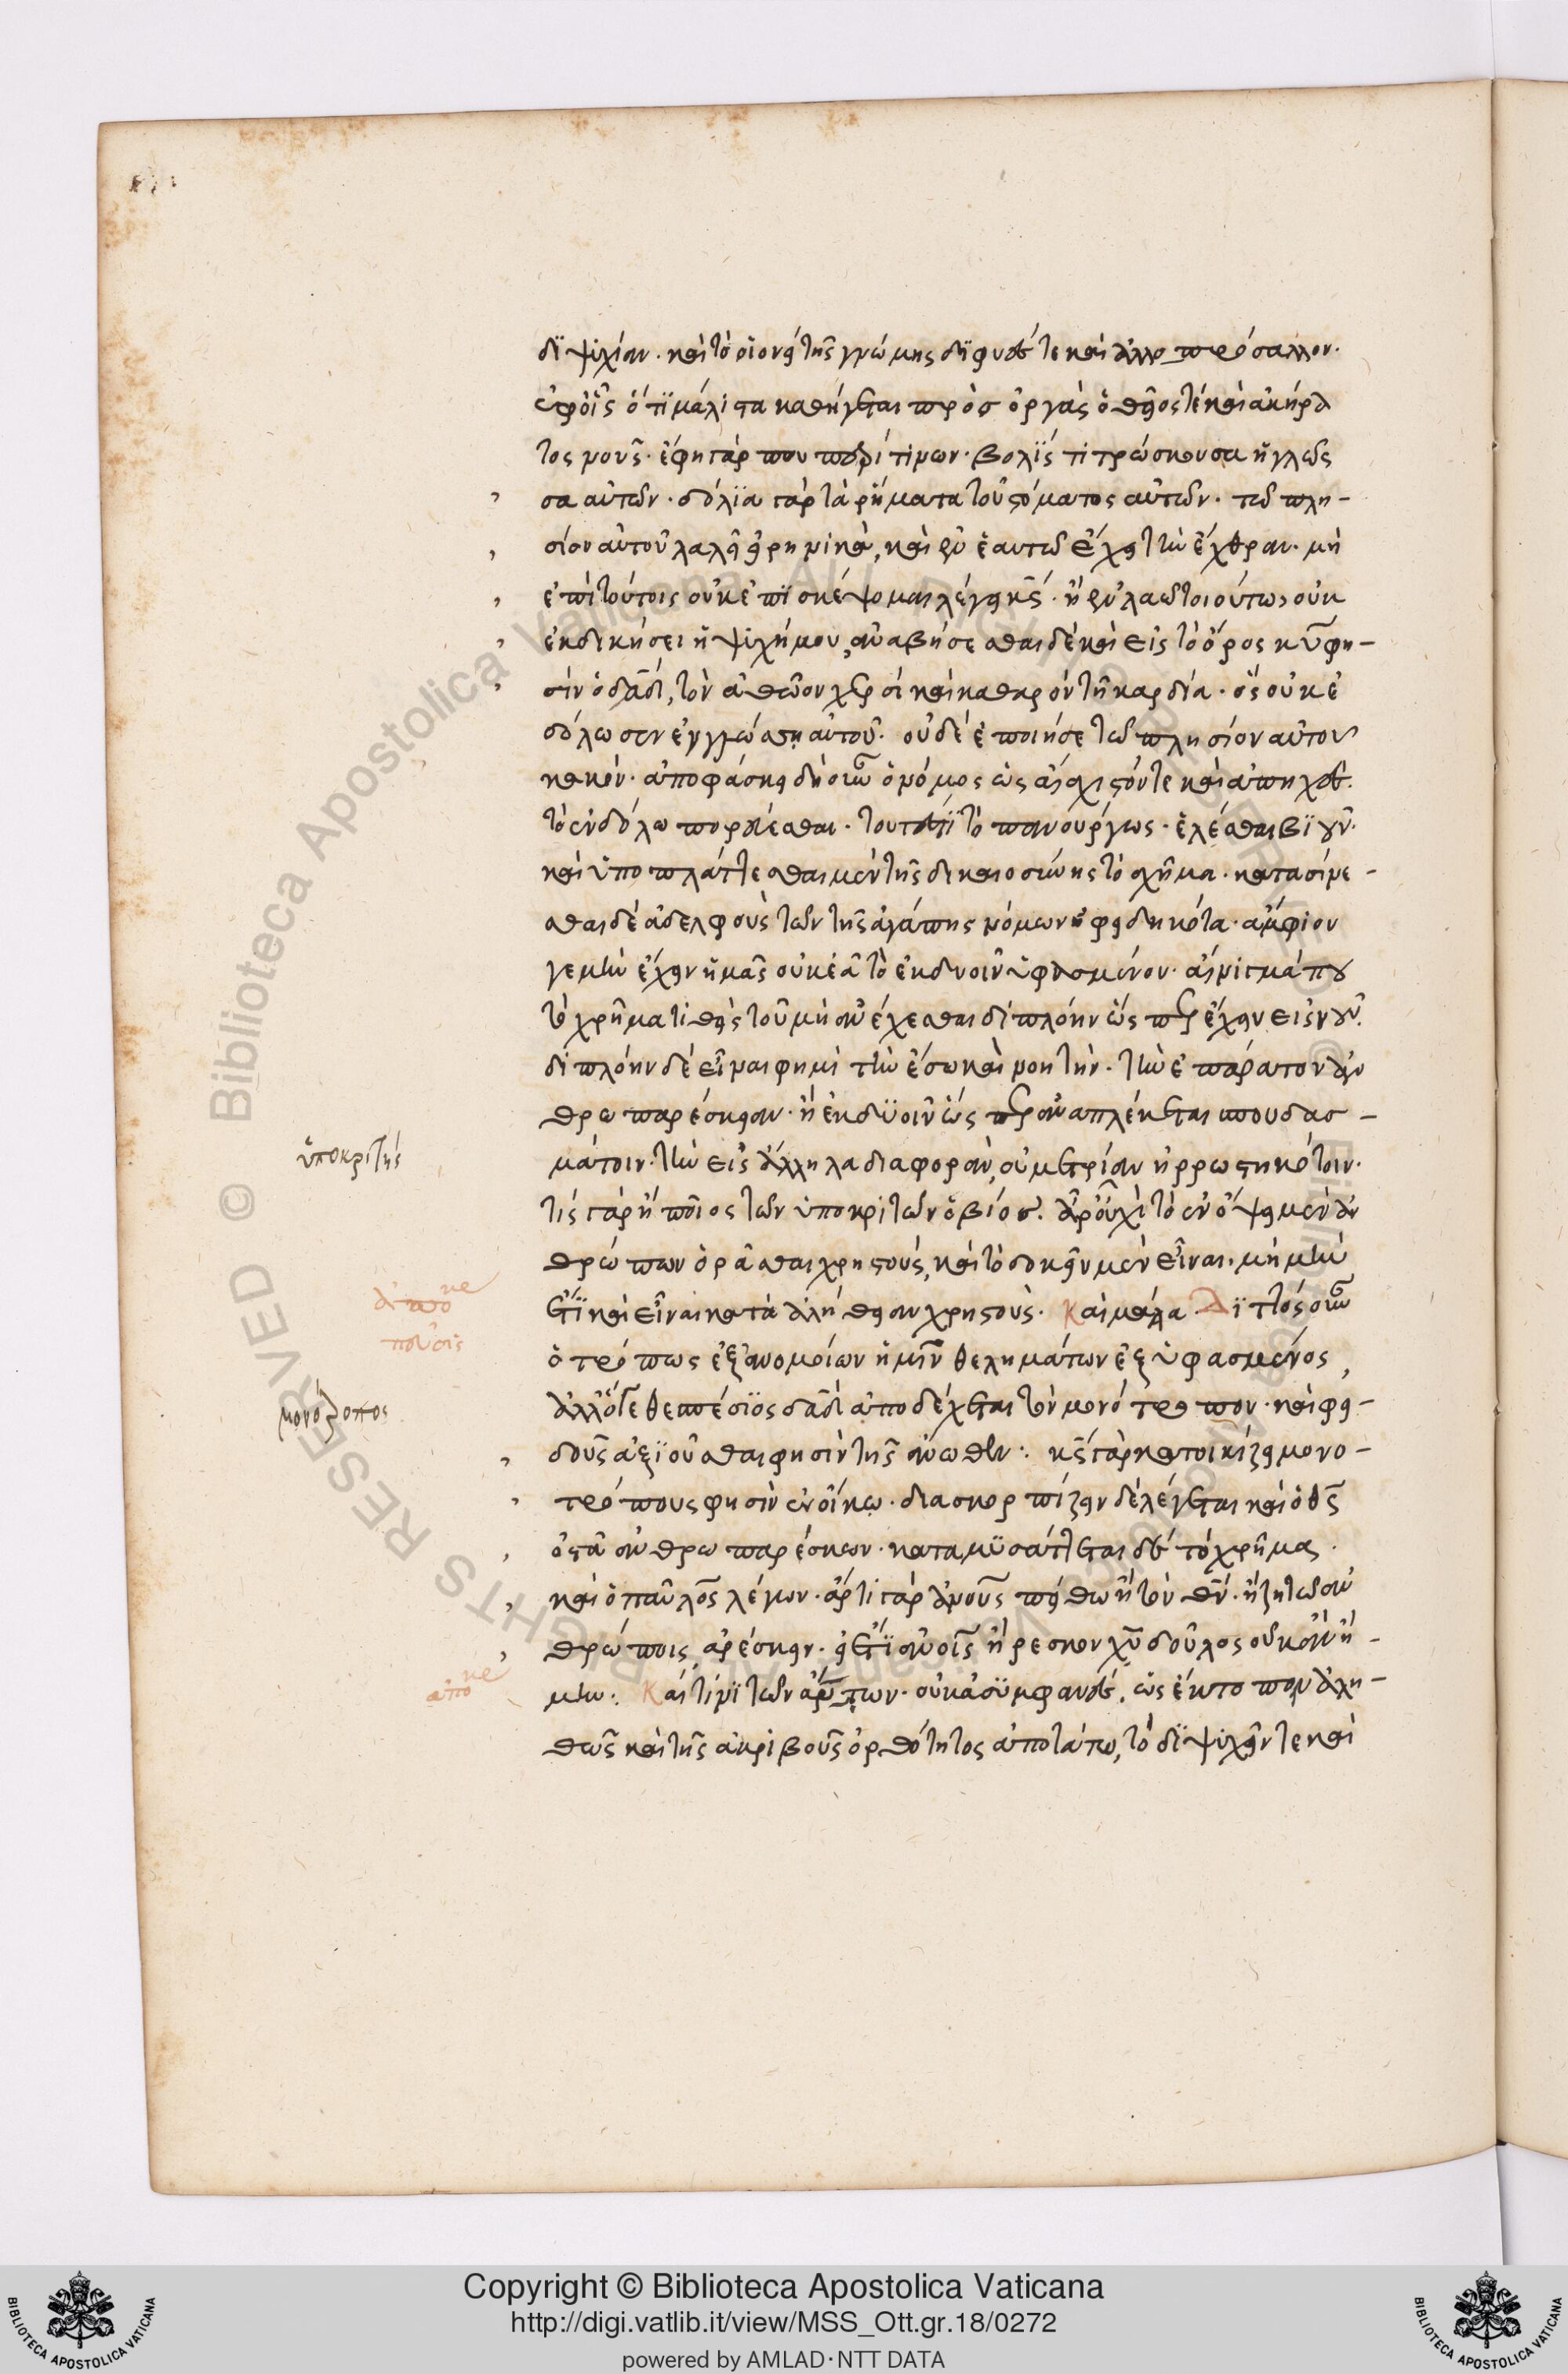 διψυχίαν· καὶ τὸ οἱονεὶ τῆς γνώμης διφυές τε καὶ ἀλλοπρόσαλλον·
ἐφ' οἷς ὅτι μάλιστα κατήγεται πρὸς ὀργὰς ὁ θεῖός τε καὶ ἀκήρα
τος νοῦς· ἔφη γάρ που περί τινων· βολὶς τιτρώσκουσα ἡ γλῶσ
σα αὐτῶν· δόλια γὰρ τὰ ῥήματα τοῦ στόματος αὐτῶν· τῷ πλη-
σίον αὐτοῦ λαλεῖ εἰρηνικὰ, καὶ ἐν ἑαυτῷ ἔχει τὴν ἔχθραν· μὴ
ἐπὶ τούτοις οὐκ ἐπισκέψομαι λέγει κς· ἢ ἐν λαῷ τοιούτῳ οὐκ
ἐκδικήσει ἡ ψυχή μου, ἀναβήσεσθαι δὲ καὶ εἰς τὸ ὄρος κυ φη-
σὶν ὁ δαδ, τὸν ἀθῶον χερσὶ καὶ καθαρὸν τῇ καρδία· ὃς οὐκ ἐ
δόλωσεν ἐν γλώσσῃ αὐτοῦ· οὐδὲ ἐποίησε τῷ πλησίον αὐτοῦ
κακόν· ἀποφάσκει δὴ οὖν ὁ νόμος ὡς αἴσχιστόν τε καὶ ἀπηχές·
τὸ ἐν δόλω πορεύεσθαι· τουτέστι τὸ πανούργως· ἑλέσθαι βιοῦν·
καὶ ὑποπλάττεσθαι μὲν τῆς δικαιοσύνης τὸ σχῆμα· κατασίνε-
σθαι δὲ ἀδελφοὺς τῶν τῆς ἀγάπης νόμων ἠφειδηκότα· ἀμφίον
γε μὴν ἔχειν ἡμᾶς οὐκ ἐᾶ τὸ ἐκ δυοῖν ὑφασμένον· αἴνιγμά που
τὸ χρῆμα τιθεὶς τοῦ μὴ ἀνέχεσθαι διπλόην ὥσπερ ἔχειν εἰς νοῦν·
διπλόην δὲ εἶναι φημὶ τὴν ἔσω καὶ νοητὴν· τὴν ἐπάρατον ἀν
θρωπαρέσκειαν· ἢ ἐκ δυοῖν ὥσπερ ἀναπλέκεται σπουδασ-
μάτοιν· τὴν εἰς ἄλληλα διαφορὰν, οὐ μετρίαν ἠρρωστηκότοιν·
τίς γὰρ ἢ ποῖος τῶν ὑποκριτῶν ὁ βίος· ἆρ' οὐχὶ τὸ ἐν ὄψει μὲν ἀν
θρώπων ὁρᾶσθαι χρηστούς, καὶ τὸ δοκεῖν μὲν εἶναι· μὴ μὴν
ἔτι καὶ εἶναι κατὰ ἀλήθειαν χρηστοὺς· Καὶ μάλα· Διττὸς οὖν
ὁ τρόπος ἐξ ἀνομοίων ἡμῖν θελημάτων ἐξυφασμένος,
ἀλλ' ὅτε θεσπέσιος δαδ ἀποδέχεται τὸν μονότροπον· καὶ φει-
δοῦς ἀξιοῦσθαι φησὶν τῆς ἄνωθεν· κς γὰρ κατοικίζει μονο-
τρόπους φησὶν ἐν οἴκω· διασκορπίζειν δὲ λέγεται καὶ ὁ θς
ὀστᾶ ἀνθρωπαρέσκων· καταμυσάττεται δὲ τὸ χρῆμα·
καὶ ὁ παῦλος λέγων· ἄρτι γὰρ ἀνους πείθω ἢ τὸν θν· ἢ ζητῶ ἀν
θρώποις ἀρέσκειν· εἰ ἔτι ἀνοις ἤρεσκον χυ δοῦλος οὐκ ἂν ἤ-
μην· Καίτινι τῶν ἁπάντων· οὐκ ἀσυμφανές, ὡς ἐκτόπου ἀλη-
θῶς καὶ τῆς ἀκριβοῦς ὀρθότητος ἀποτάτω, τὸ διψυχεῖν τε καὶ
ὑποκριτής
ἀπο
που σις
μονότροπος